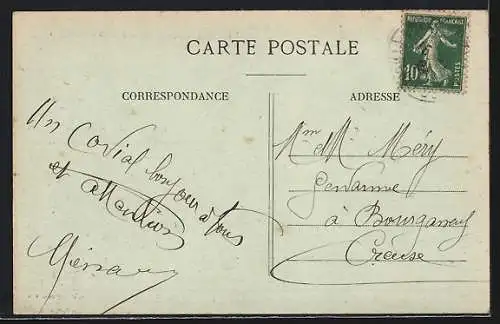 CARTE POSTALE
REPUBLIQUE FRANÇAISE
10c
POSTES
CORRESPONDANCE
ADRESSE
Un Cordial bonjour à tous
et
Mme Mr Méry
Gendarme
à Bourganeuf
Creuse